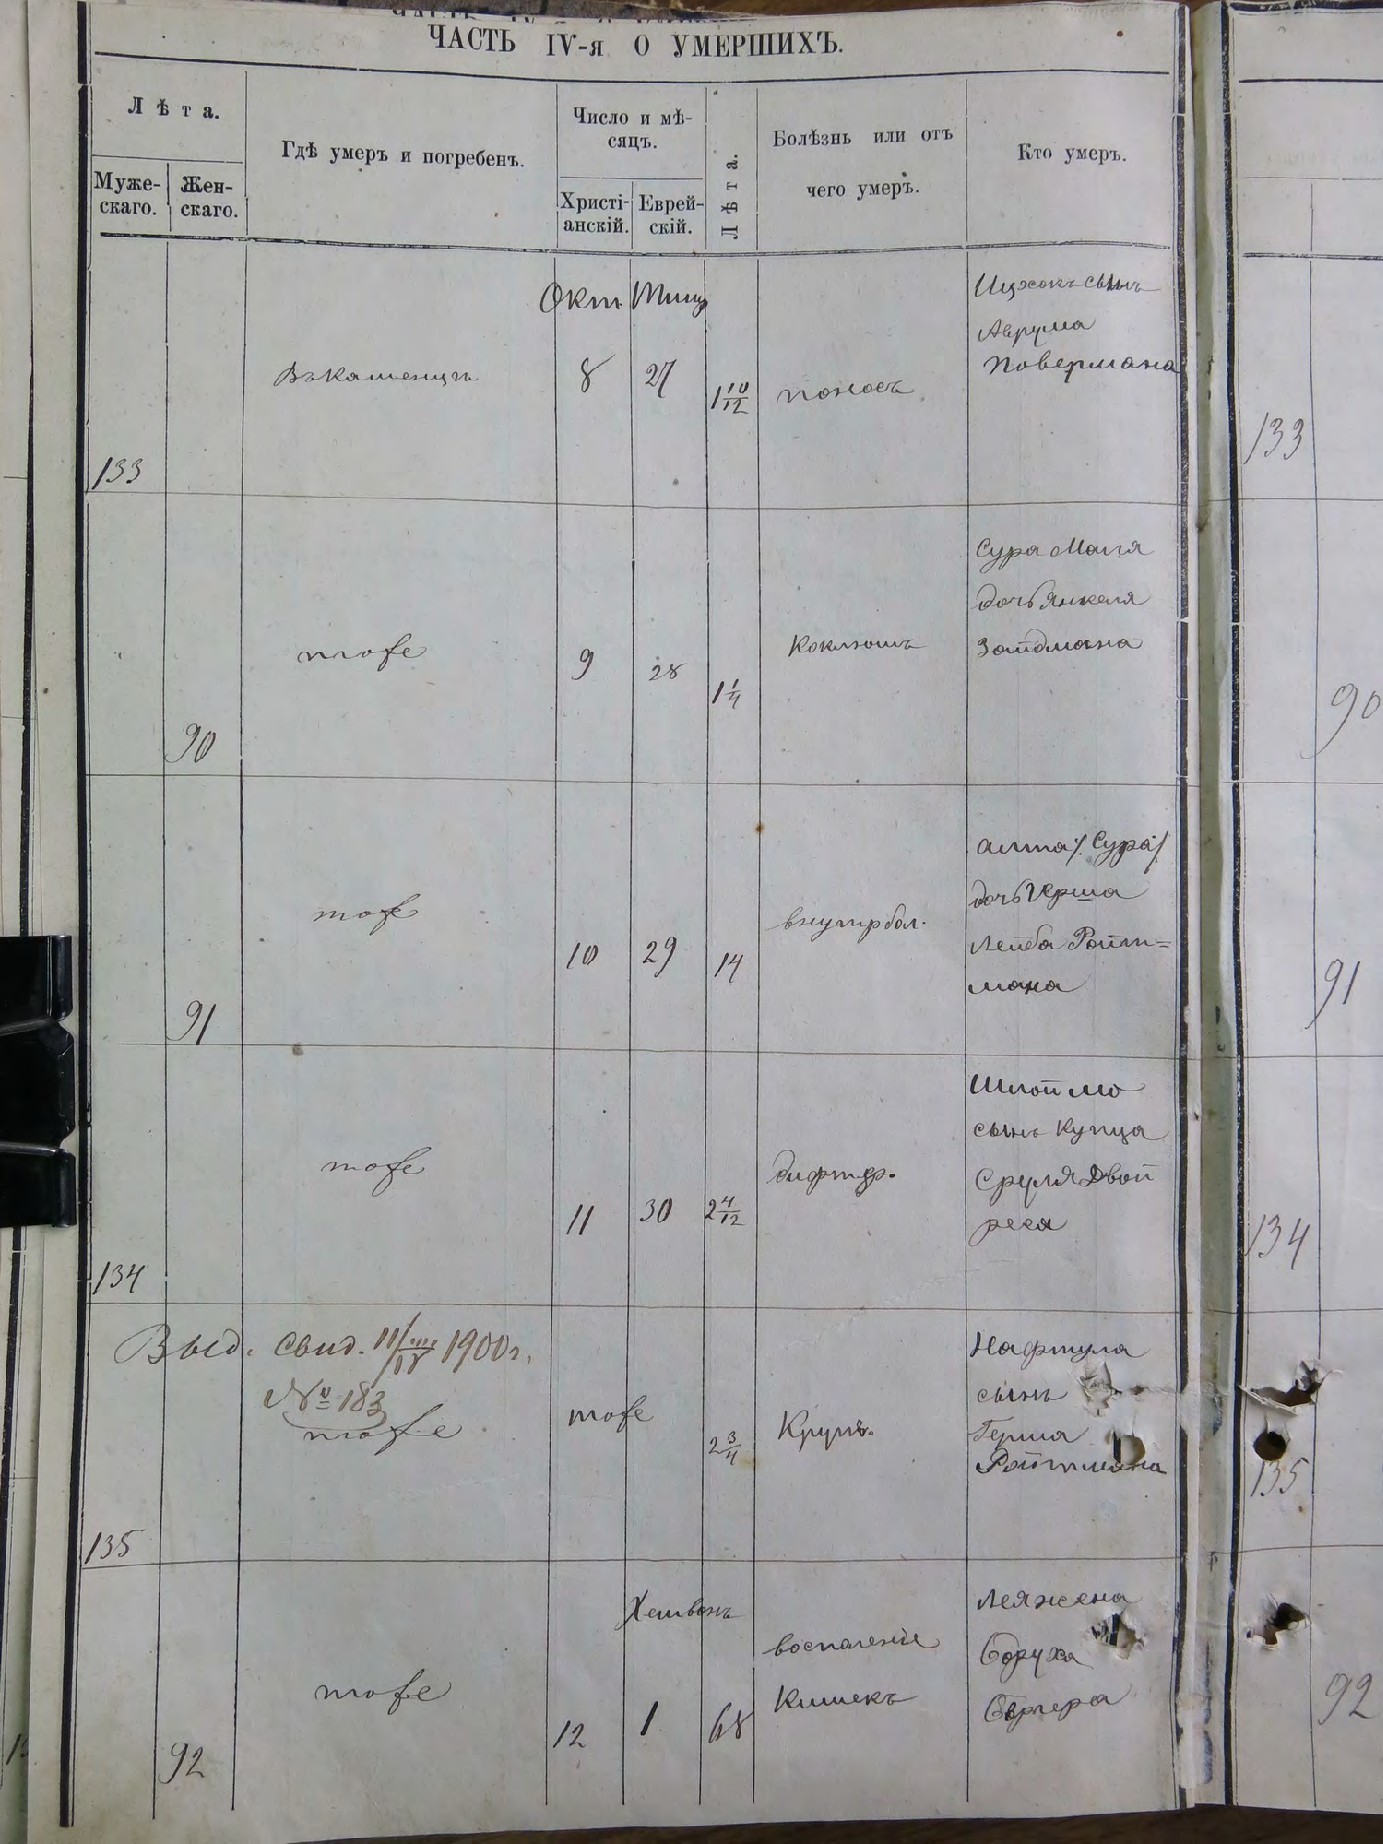 ЧАСТЬ IV-я О УМЕРШИХЪ.
Лѣта.
Муже-
скаго.
Жен-
скаго.
Гдѣ умеръ и погребенъ.
Число и мѣ-
сяцъ.
Христі-
анскій.
Еврей-
скій.
Лѣта.
Болѣзнь или отъ
чего умеръ.
Кто умеръ.
133
Въ Каменцѣ
Окт
8
27
1 10/12
поносъ
Ицхокъ сынъ
Аврума
Повермана
133
90
тоже
9
28
1 1/4
Коклюшъ
Сура Маня
дочь Янкеля
Зайдмана
90
91
тоже
10
29
14
внутр бол.
Алта /: Сура :/
дочь Герша
Лейба Ройт=
мана
91
134
тоже
11
30
2 4/12
дифтер.
Шлоймо
сынъ Купца
Сруля Двой
реса
134
Выд. свид. 1900 г.
№ 183
135
тоже
тоже
2 3/4
Крупъ.
Нафтула
сынъ
Герша
Ройтмана
135
92
тоже
12
Хешвонъ
1
68
воспаленіе
Кишекъ
Лея жена
Боруха
Бергера
92